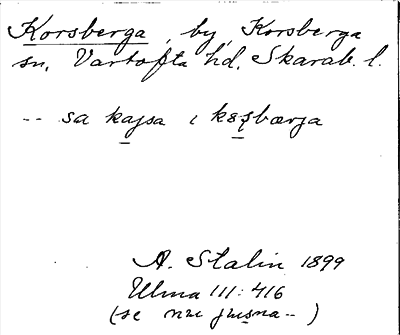 Korsberga, by, Korsberga
sn, Vartofta hd, Skarab. l.
-- sa kajsa i
A. Stalin 1899
Ulma III: 416
(se --)